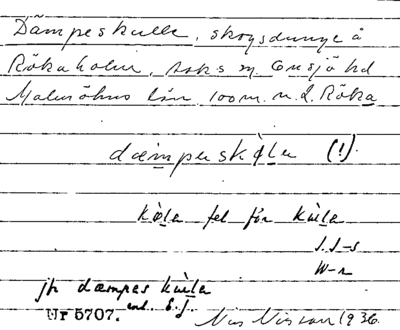 Dämpeskulle, skogsdunge å
Röka holm, soks m. Onsjö hd
Malmöhus län 100 m. n. L. Röka
dæmpeskǫla (!).
kǫla fel för kula
J. J-s
W-r
jfr dæmpes kula
enl. E. J.
Nr 5707.
Nils Nilsson 1936.